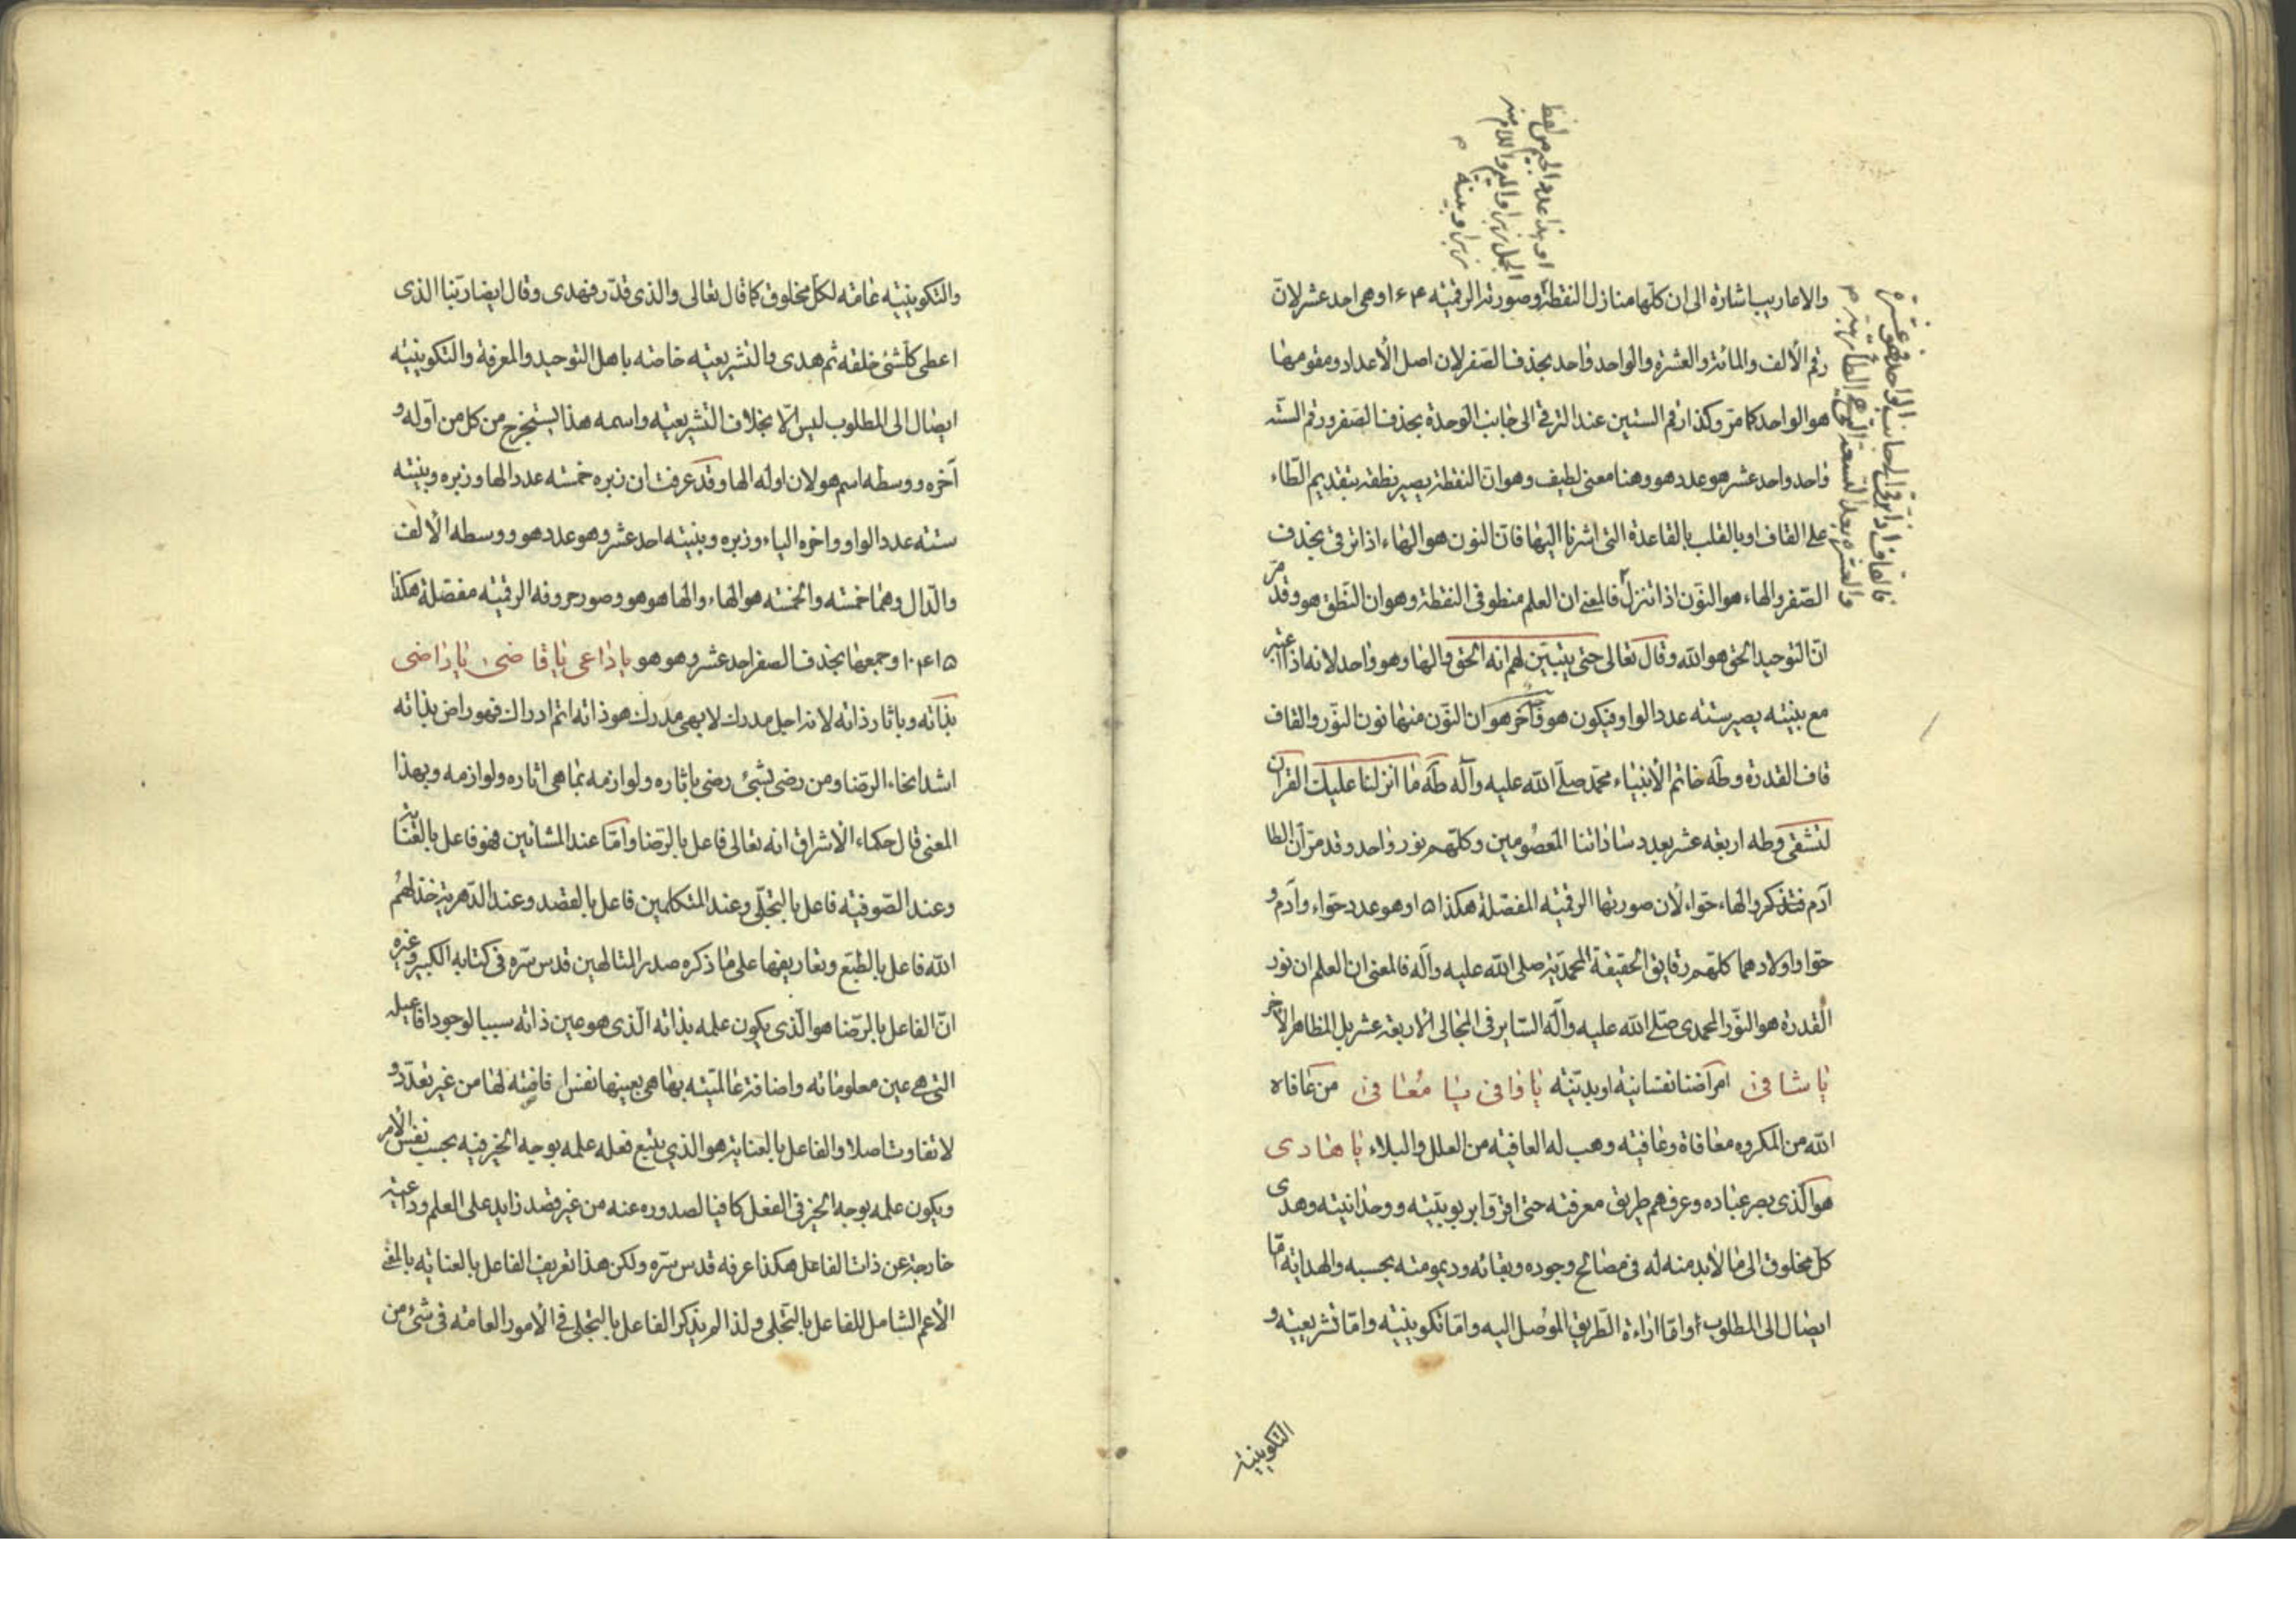 والاماريب اشارة الى ان كلها منازل النقطة وصورته الرقمية ١٤٠٦ وهى احد عشر لان
رقم الألف والمائة والعشرة والواحد واحد بحذف الصفر لان اصل الأعداد ومقومها
هو الواحد كما مر وكذا رقم الستين عند الترقى الى جانب الوحدة بحذف الصفر ورقم الستة
واحد واحد عشر هو عدد هو وهنا معنى لطيف وهو ان النقطة يصير نطقه بتقديم الطاء
على القاف او بالقلب بالقاعدة التى اشرنا اليها فان النون هو الهاء اذا ترقى بحذف
الصفر والهاء هو النون اذا تنزل فالمعنى ان العلم منطو فى النقطة وهو ان النطق هو وقد مر
ان التوحيد الحق هو الله وقال تعالى حتى يتبين لهم انه الحق والها وهو واحد لانه اذا اعتبر
مع بينته يصير ستة عدد الواو فيكون هو وآخر هو ان النون منها نون النور والقاف
قاف القدرة وطه خاتم الأنبياء محمد صلى الله عليه وآله طه ما انزلنا عليك القران
لتشقى وطه اربعة عشر بعدد ساداتنا المعصومين وكلهم نور واحد وقد مر ان الطا
آدم فتذكر والهاء حواء لأن صورتها الرقمية المفصلة هكذا ١٥ وهو عدد حواء وآدم و
حوا واولادهما كلهم رقايق الحقيقة المحمدية صلى الله عليه وآله فالمعنى ان العلم ان نور
القدرة هو النور المحمدى صلى الله عليه وآله الساير فى المجالى الاربعة عشر بل المظاهر الأخر
يا شافى امراضنا نفسانية او بدنية يا وافى يا معافى من عافاه
الله من المكروه معافاة وعافية وهب له العافية من العلل والبلاء يا هادى
هو الذى بصر عباده وعرفهم طريق معرفته حتى اقروا بربوبيته ووحدانيته وهدى
كل مخلوق الى ما لابد منه له فى مصالح وجوده وبقائه وديمومته بحسبه والهداية اما
ايصال الى المطلوب او اما اراءة الطريق الموصل اليه واما تكوينية واما تشريعية و
التكوينية
او هذا عدد الجيم من لفظ
الجمل زبرا والميم واللام منه
زبرا وبينة م
فالقاف اذا ترقى الى جانب الواحد فهو عشرة
والعشرة بعد التسعة
والتكوينية عامة لكل مخلوق كما قال تعالى والذى قدر فهدى وقال ايضا ربنا الذى
اعطى كلشئ خلقه ثم هدى والتشريعية خاصه باهل التوحيد والمعرفة والتكوينية
ايصال الى المطلوب ليس الا بخلاف التشريعية واسمه هذا يستخرج من كل من اوله و
آخره ووسطه اسم هو لان اوله الها وقد عرفت ان زبره خمسة عدد الها وزبره وبينته
ستة عدد الواو واخره الياء وزبره وبينته احد عشر وهو عدد هو ووسطه الألف
والدال وهما خمسة والخمسة هو الهاء والها هو هو وصور حروفه الرقمية مفصلة هكذا
١٠٤١٥ وجمعها بحذف الصفر احد عشر وهو هو يا داعى يا قاضى يا راضى
بذاته وباثار ذاته لانه اجل مدرك لابهى مدرك هو ذاته اتم ادراك فهو راض بذاته
اشد انحاء الرضا ومن رضى بشئ رضى باثاره ولوازمه بما هى اثاره ولوازمه وبهذا
المعنى قال حكماء الأشراق انه تعالى فاعل بالرضا واما عند المشائين فهو فاعل بالعناية
وعند الصوفية فاعل بالتجلى وعند المتكلمين فاعل بالقصد وعند الدهرية خذلهم
الله فاعل بالطبع وتعاريفها على ما ذكره صدر المتالهين قدس سره فى كتابه الكبير وغيره
ان الفاعل بالرضا هو الذى يكون علمه بذاته الذى هو عين ذاته سببا لوجود افاعيله
التى هى عين معلوماته واضافة عالميته بها هى بعينها نفس افاضته لها من غير تعدد و
لا تفاوت اصلا والفاعل بالعناية هو الذى يتبع فعله علمه بوجه الخير فيه بحسب نفس الأمر
ويكون علمه بوجه الخير فى الفعل كافيا لصدوره عنه من غير قصد زايد على العلم وداعية
خارجة عن ذات الفاعل هكذا عرفه قدس سره ولكن هذا تعريف الفاعل بالعناية بالمعنى
الأعم الشامل للفاعل بالتجلى ولذا لم يذكر الفاعل بالتجلى فى الأمور العامة فى شئ من